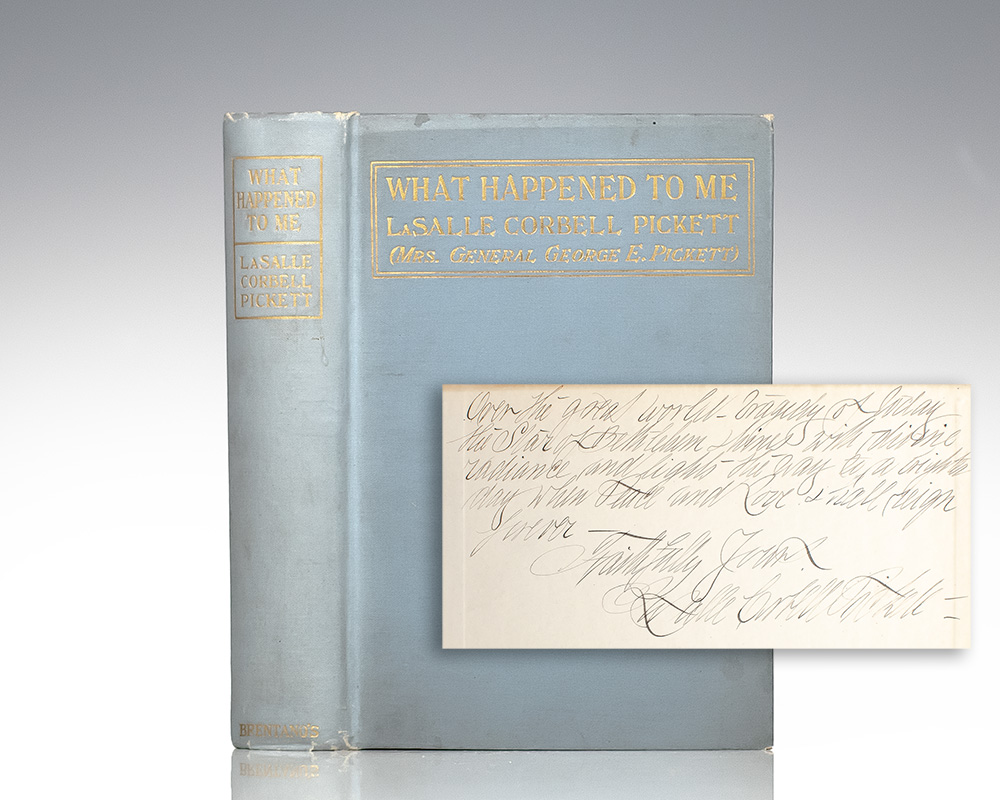 WHAT
HAPPENED
TO ME
LASALLE
CORBELL
PICKETT
BRENTANO'S
WHAT HAPPENED TO ME
LASALLE CORBELL PICKETT
(MRS. GENERAL GEORGE E. PICKETT)
Over the great world-tragedy of today
the Star of Bethlehem shines with divine
radiance, and lights the way to a brighter
day when Peace and Love shall reign
forever —
Faithfully Yours
LaSalle Corbell Pickett —